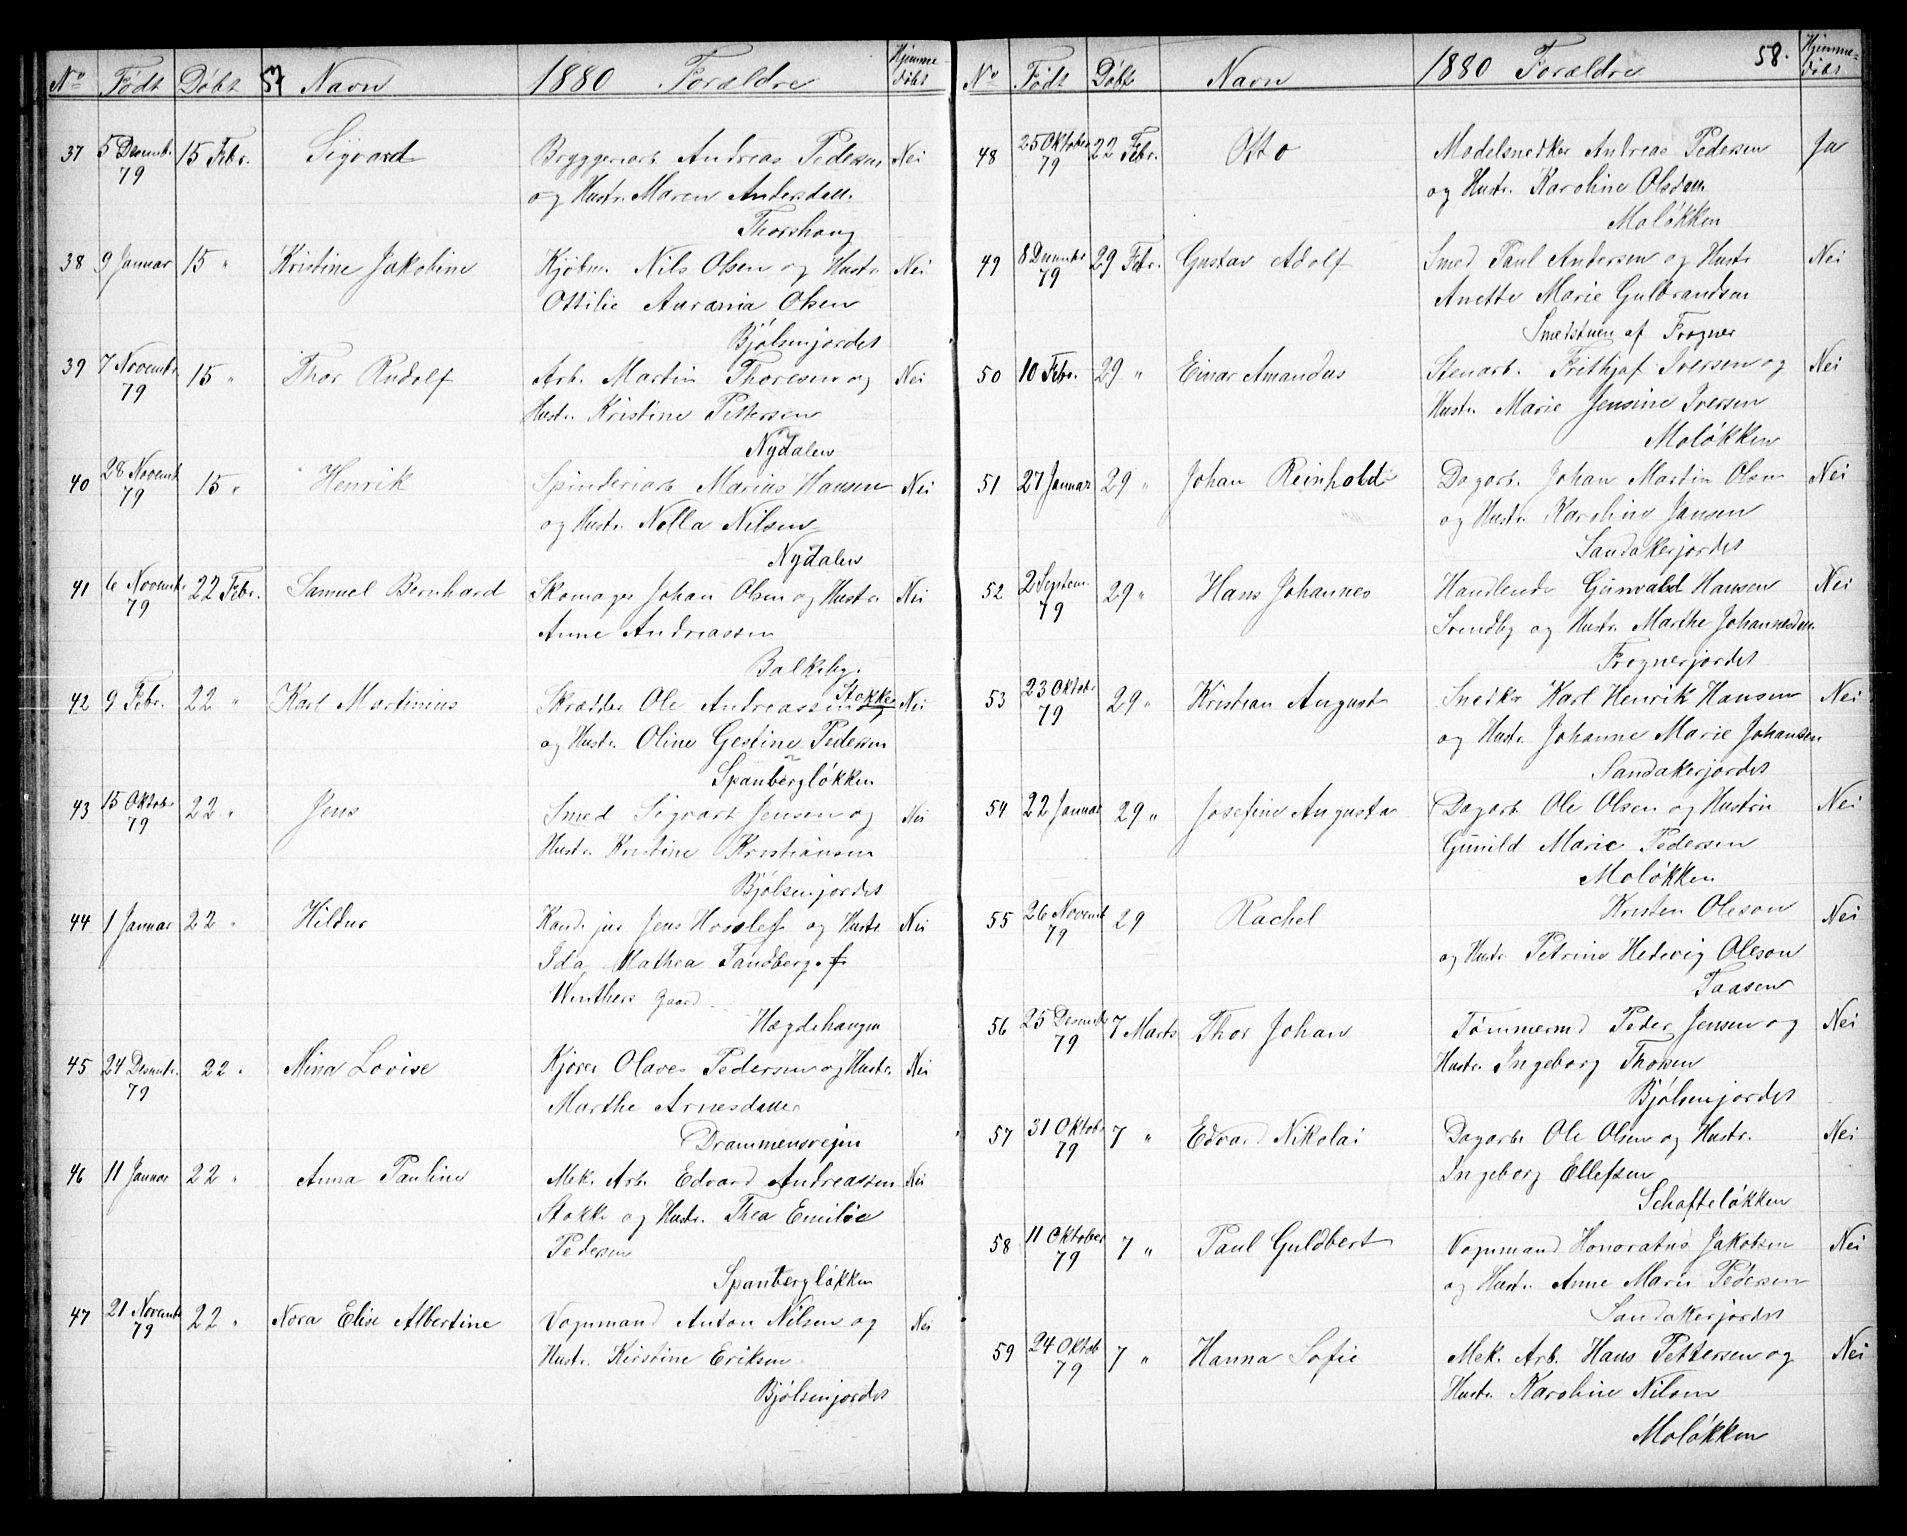 No Født Døbt 57 Navn 1880 Forældre Hjemmedøbt
37 5 Desemb. 79 15 Febr. Sigvard Bryggeriarb. Andreas Pedersen Nei
og Hustr. Maren Andersdatt.
Thorshaug
38 9 Januar 15 " Kristine Jakobine Kjøbm. Nils Olsen og Hustr. Nei
Ottilie Aurania Olsen
Bjølsenjordet
39 7 Novembr. 79 15 " Thor Rudolf Arb. Martin Thoresen og Nei
Hustr. Kristine Pettersen
Nydalen
40 28 Novemb. 79 15 " Henrik Spinderiarb. Marius Hansen Nei
og Hustr. Nella Nilsen
Nydalen
41 6 Novembr. 79 22 Febr. Samuel Bernhard Skomager Johan Olsen og Hustr. Nei
Anne Andreassen
Balkeby.
42 9 Febr. 22 " Karl Martinius Skrædder Ole Andreassen Stokke Nei
og Hustr. Oline Gestine Pedersen
Spanbergløkken
43 15 Oktobr. 79 22 " Jens Smed Sigvart Jensen og Nei
Hustr. Kristine Kristiansen
Bjølsenjordet
44 1 Januar 22 " Hildur Kand. jur Jens og Hustr. Nei
Ida Mathea Tandberg. f
Winthers Gaard
Hægdehaugen
45 24 Desembr. 79 22 " Mina Lovise Kjører Olaves Pedersen og Hustr. Nei
Marthe Arnesdatter
Drammensvejen
46 11 Januar 22 " Anna Pauline Mek. Arb. Edvard Andreassen Nei
Stokke og Hustr. Thea Emilie
Pedersen
Spanbergløkken
47 21 Novembr. 79 22 " Nora Elise Albertine Vognmand Anton Nilsen og Nei
Hustr. Kirstine Eriksen
Bjølsenjordet
No Født Døbt Navn 1880 Forældre 58. Hjemmedøbt
48 25 Oktober 79 22 Febr. Otto Modelsnedker Andreas Pedersen Ja
og Hustr. Karoline Olsdatt.
Moløkken
49 8 Desembr 79 29 Febr. Gustav Adolf Smed Paul Andersen og Hustr. Nei
Anette Marie Gulbrandsen
Smedstuen af Frogner
50 10 Febr. 29 " Einar Amandus Stenarb. Frithjof Iversen og Nei
Hustr. Marie Jensine Iversen
Moløkken
51 27 Januar 29 " Johan Reinhold Dagarb. Johan Martin Olsen Nei
og Hustr. Karoline Jansen
Sandakerjordet
52 2 Septem. 79 29 " Hans Johannes Handlende Gunvald Hansen Nei
Svendby og Hustr. Marthe Johannesdtr.
Frognerjordet
53 23 Oktobr 79 29 " Kristian August Snedker Karl Henrik Hansen Nei
og Hustr. Johanne Marie Johansen
Sandakerjordet
54 22 Januar 29 " Josefine Augusta Dagarb. Ole Olsen og Hustru Nei
Gunild Marie Pedersen
Moløkken
55 26 Novemb. 79 29 Rachel Kristen Oleson Nei
og Hustr. Petrine Hedevig Oleson
Taasen
56 25 Desember 79 7 Marts Thor Johan Tømmermd Peder Jensen og Nei
Hustr. Ingeborg Thorsen
Bjølsenjordet
57 31 Oktobr 79 7 " Edvard Nikolai Dagarb. Ole Olsen og Hustr. Nei
Ingeborg Ellefsen
Schafteløkken
58 11 Oktober 79 7 " Paul Guldbert Vognmand Honoratus Jakobsen Nei
og Hustr. Anne Marie Pedersen
Sandakerjordet
59 24 Oktob 79 7 " Hanna Sofie Mek. Arb. Hans Pettersen og Nei
Hustr. Karoline Nilsen
Moløkken